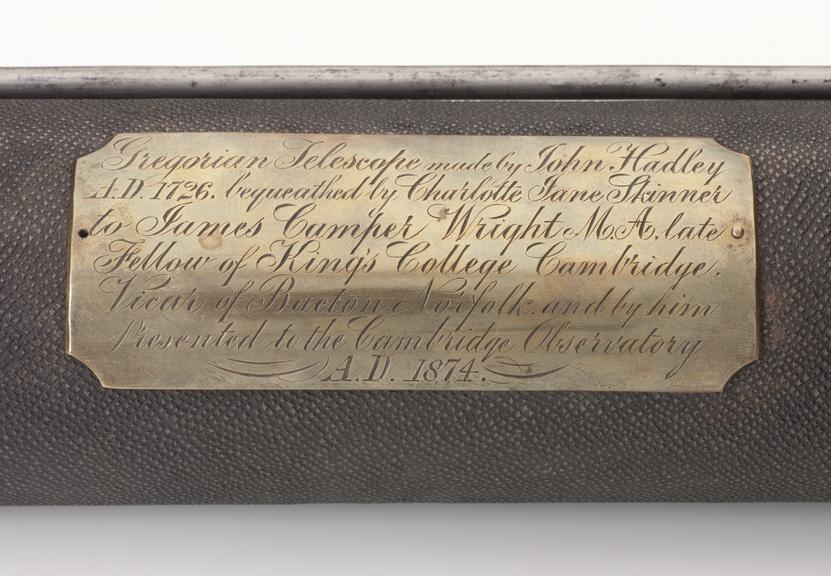 Gregorian Telescope made by John Hadley
A.D. 1726. bequeathed by Charlotte Jane Skinner
to James Camper Wright M.A. late
Fellow of King's College Cambridge,
Vicar of Bacton Norfolk, and by him
Presented to the Cambridge Observatory
A.D. 1874.